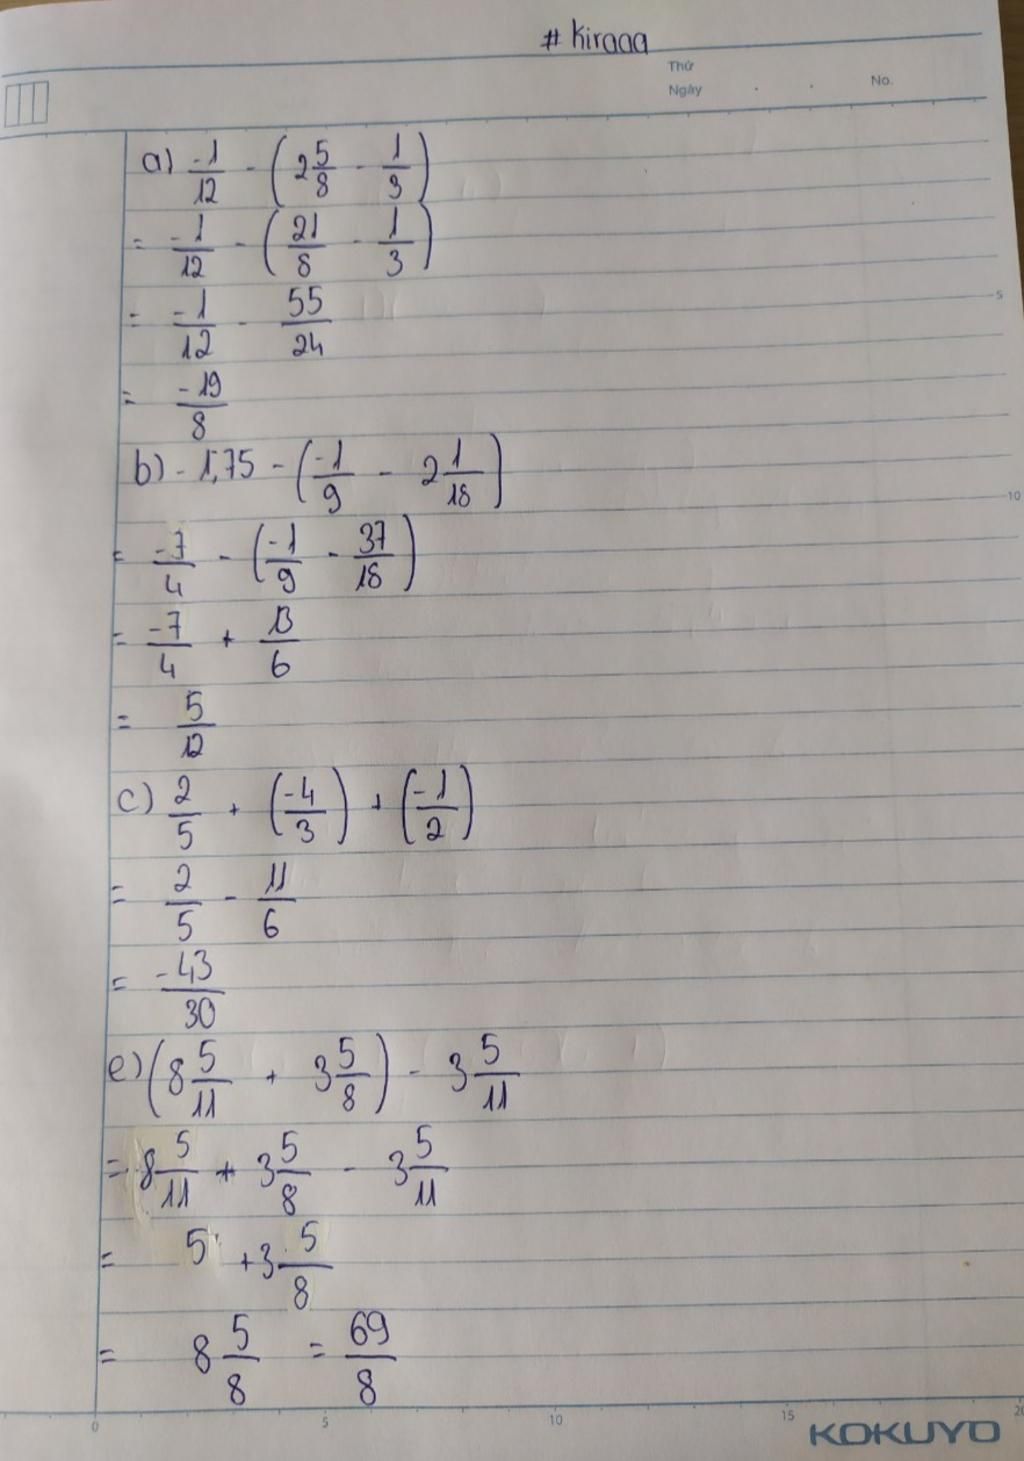 # kiraaa
Thứ
Ngày . . No.
a) -1/12 - (2 5/8 - 1/3)
= -1/12 - (21/8 - 1/3)
= -1/12 - 55/24
5
= -19/8
b) - 1,75 - (-1/9 - 2 1/18)
10
= -7/4 - (-1/9 - 37/18)
= -7/4 + 13/6
= 5/12
c) 2/5 + (-4/3) + (-1/2)
= 2/5 - 11/6
= -43/30
e) (8 5/11 + 3 5/8) - 3 5/11
= 8 5/11 + 3 5/8 - 3 5/11
= 5 + 3 5/8
= 8 5/8 = 69/8
0 5 10 15 20
KOKUYO